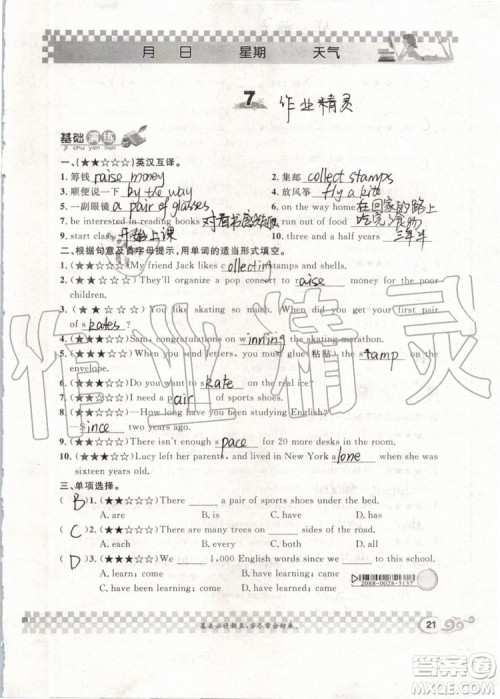 月 日 星期 天气
7 作业精灵
基础演练
ji chu yan lian
一、(★★☆☆☆)英汉互译。
1. 筹钱 raise money 2. 集邮 collect stamps
3. 顺便说一下 by the way 4. 放风筝 fly a kite
5. 一副眼镜 a pair of glasses 6. on the way home 在回家的路上
7. be interested in reading books 对看书感兴趣 8. run out of food 吃完食物
9. start class 开始上课 10. three and a half years 三年半
二、根据句意及首字母提示,用单词的适当形式填空。
1. (★★☆☆☆)My friend Jack likes collecting stamps and shells.
2. (★★☆☆☆)They'll organize a pop concert to raise money for the poor children.
3. (★★☆☆☆)You like skating so much. When did you get your first pair of skates?
4. (★★☆☆☆)Sam, congratulations on winning the skating competition.
5. (★★☆☆☆)When you send letters, you must glue(粘贴) the stamp on the envelope.
6. (★★☆☆☆)Do you want to skate on the real ice!
7. (★★☆☆☆)I need a pair of sports shoes.
8. (★★☆☆☆)—How long have you been studying English?
—Since two years ago.
9. (★★☆☆☆)There isn't enough space for 20 more desks in the room.
10. (★★★☆☆)Lucy left her parents, and lived in New York alone when she was
sixteen years old.
三、单项选择。
( B )1. (★★☆☆☆)There ____ a pair of sports shoes under the bed.
A. are B. is C. have D. has
( C )2. (★★☆☆☆)There are many trees on ____ sides of the road.
A. each B. all C. both D. either
( D )3. (★★★☆☆)We ____ 1,000 English words since we ____ to this school.
A. learn; come B. have learning; came
C. have learned; come D. have learned; came
2088-0028-5137
21
作业精灵